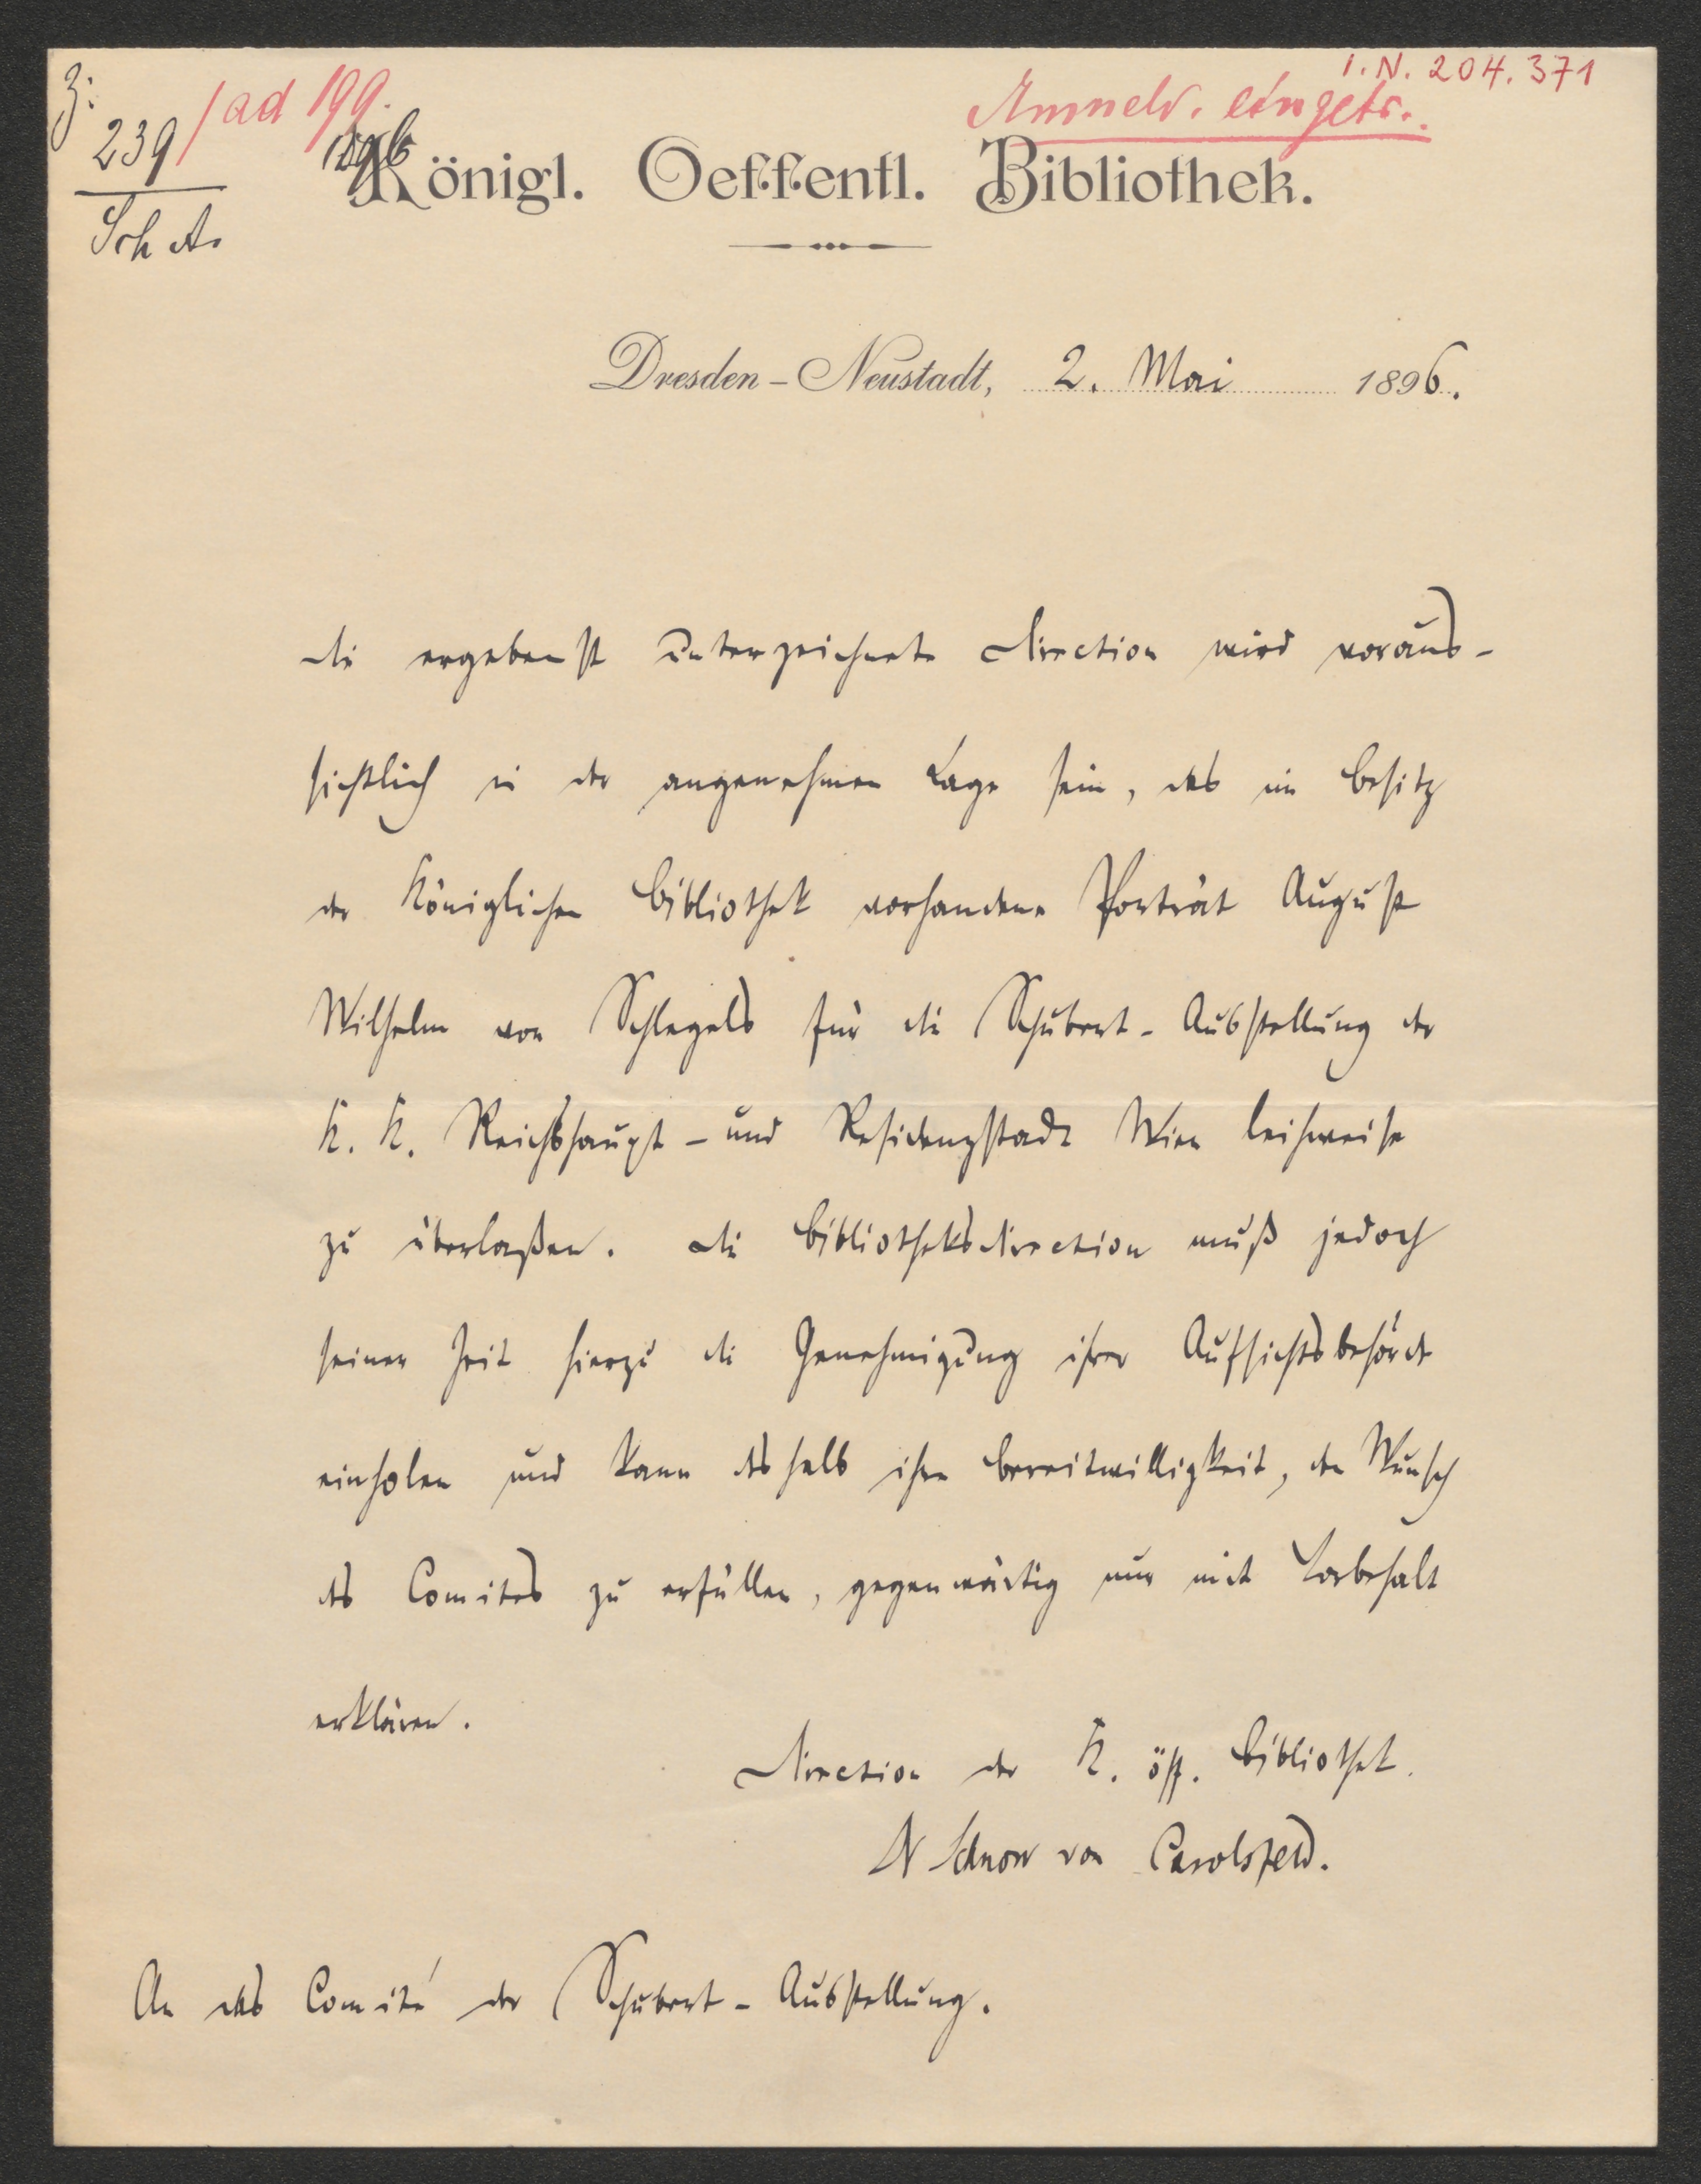 Z: 239 / ad 199.
1896
Sch A.
I.N. 204.371
Anmeld. eingetr.
Königl. Oeffentl. Bibliothek.
Dresden-Neustadt, 2. Mai 1896.
Die ergebenst unterzeichnete Direction wird voraus-
sichtlich in der angenehmen Lage sein, das im Besitz
der Königlichen Bibliothek vorhandene Porträt August
Wilhelm von Schlegels für die Schubert-Ausstellung der
K. K. Reichshaupt- und Residenzstadt Wien leihweise
zu überlaßen. Die Bibliotheksdirection muß jedoch
seiner Zeit hierzu die Genehmigung ihrer Aufsichtsbehörde
einholen und kann deshalb ihre Bereitwilligkeit, den Wunsch
des Comites zu erfüllen, gegenwärtig nur mit Vorbehalt
erklären.
Direction der K. öff. Bibliothek.
Schnorr von Carolsfeld.
An das Comité der Schubert-Ausstellung.